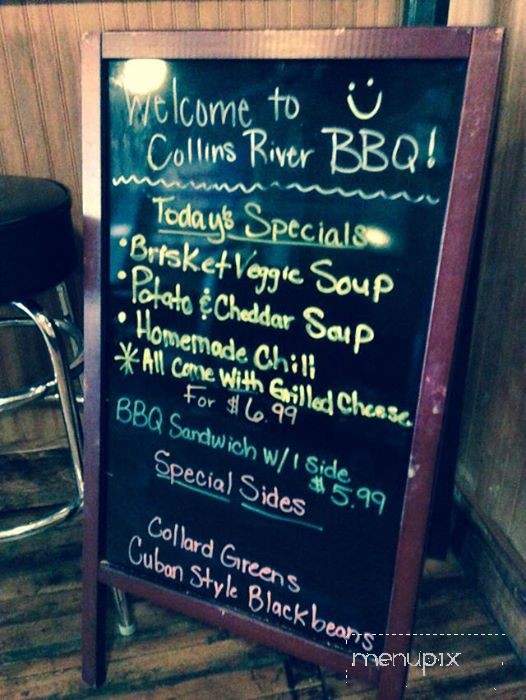 Welcome to
Collins River BBQ!
Today's Specials
• Brisket Veggie Soup
• Potato & Cheddar Soup
• Homemade Chili
* All Come With Grilled Cheese
For $6.99
BBQ Sandwich w/1 Side
$5.99
Special Sides
Collard Greens
Cuban Style Blackbeans
menupix